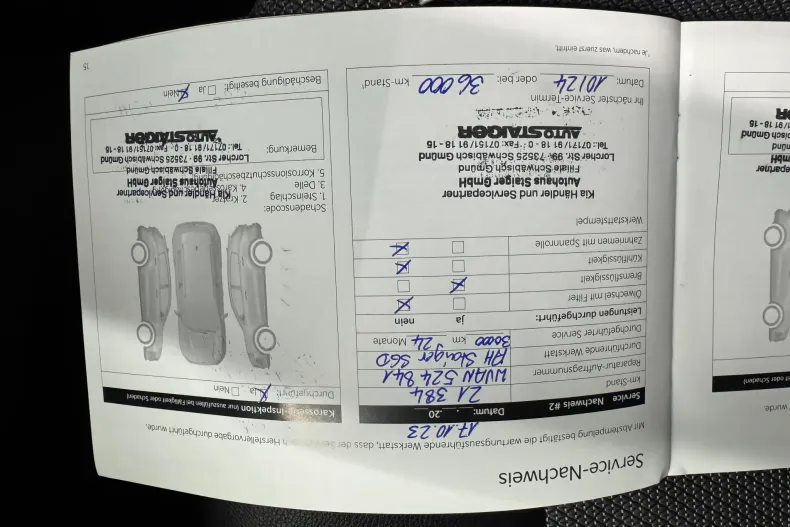 Service-Nachweis
Mit Abstempelung bestätigt die wartungsausführende Werkstatt, dass der Service nach Herstellervorgabe durchgeführt wurde.
17.10.23
Service Nachweis #2 Datum: . .20
km-Stand 21 384
Reparatur-Auftragsnummer WVAN 524 841
Durchführende Werkstatt AH Staiger SGD
Durchgeführter Service 30000 km 24 Monate
Leistungen durchgeführt: ja nein
Ölwechsel mit Filter
Bremsflüssigkeit
Kühlflüssigkeit
Zahnriemen mit Spannrolle
Werkstattstempel
Kia Händler und Servicepartner
Autohaus Staiger GmbH
Filiale Schwäbisch Gmünd
Lorcher Str. 99 · 73525 Schwäbisch Gmünd
Tel.: 07171/91 18 - 0 · Fax: 07157/91 18 - 15
AUTO STAIGER
Ihr nächster Service-Termin
Datum: 10/24 oder bei: 36 000 km-Stand*
*Je nachdem, was zuerst eintritt.
Karosserie-Inspektion (nur auszufüllen bei Fälligkeit oder Schaden)
Durchgeführt: Ja Nein
Schadenscode:
1. Steinschlag 2. Kratzer
3. Delle 4.
5. Korrosionsschutzbeschädigung
Kia Händler und Servicepartner
Autohaus Staiger GmbH
Filiale Schwäbisch Gmünd
Lorcher Str. 99 · 73525 Schwäbisch Gmünd
Tel.: 07171/91 18 - 0 · Fax: 07157/91 18 - 15
AUTO STAIGER
Bemerkung:
Beschädigung beseitigt: Ja Nein
15